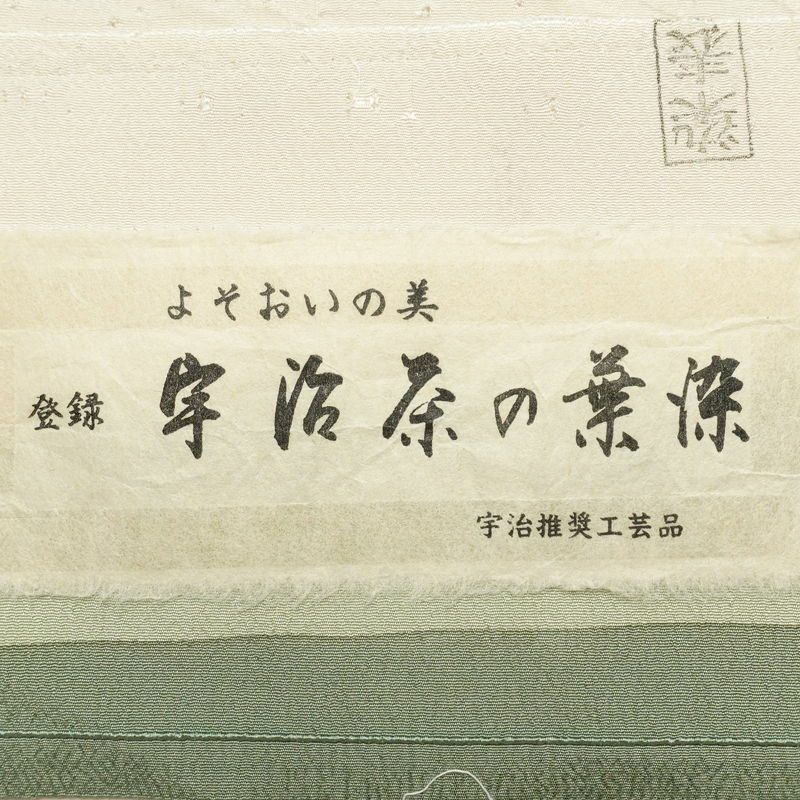 よそおいの美
登録 宇治茶の葉染
宇治推奨工芸品